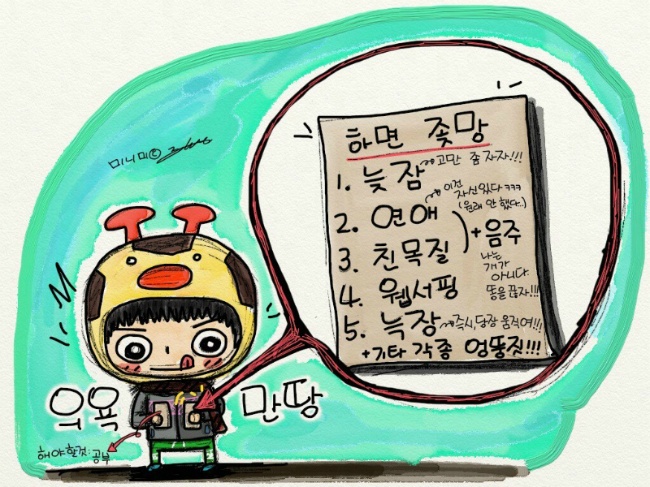 하면 좆망
1. 늦잠 고만 좀 자자!!!
2. 연애 이건 자신있다 ㅋㅋㅋ
(원래 안 했다..)
3. 친목질
4. 웹서핑
+음주
나는
개가
아니다
똥을 끊자!!!
5. 늑장 즉시, 당장 움직여!!!
+기타 각종 엉뚱짓!!!
미니미©
의욕 만땅
해야할것: 공부